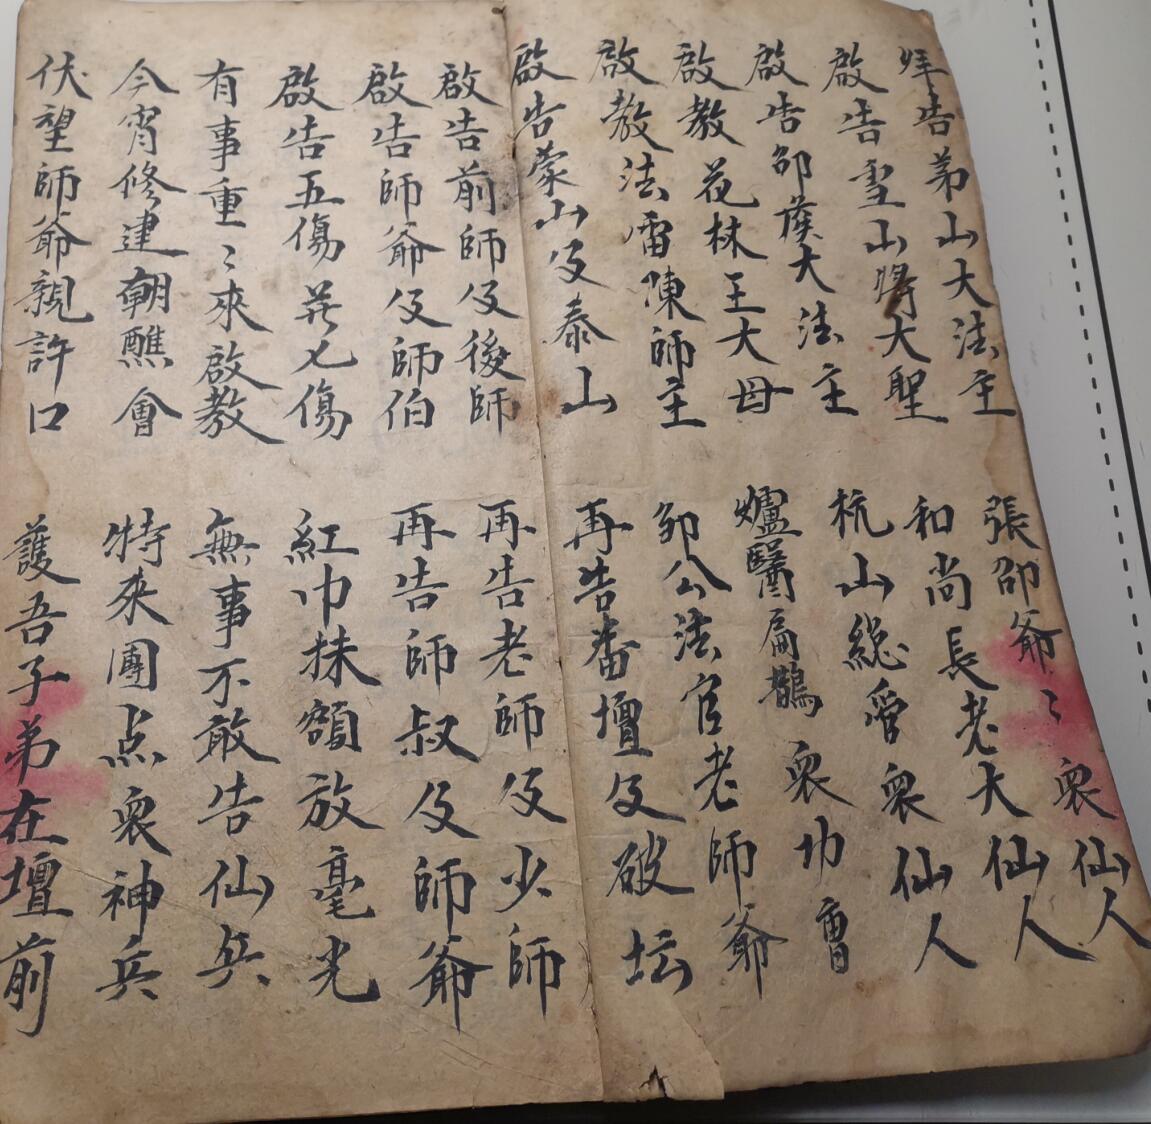 拜告茅山大法主
張邵爺〻衆仙人
啟告雪山將大聖
和尚長老大仙人
啟告邵侯大法主
杭山總管衆仙人
啟教花林王大母
爐醫扁鵲衆功曹
啟教法雷陳師主
邵公法官老師爺
啟告蒙山及泰山
再告番壇及破坛
啟告前師及後師
再告老師及少師
啟告師爺及師伯
再告師叔及師爺
啟告五傷并七傷
紅巾抹額放毫光
有事重〻來啟教
無事不敢告仙兵
今宵修建朝醮會
特來團点衆神兵
伏望師爺親許口
護吾子弟在壇前